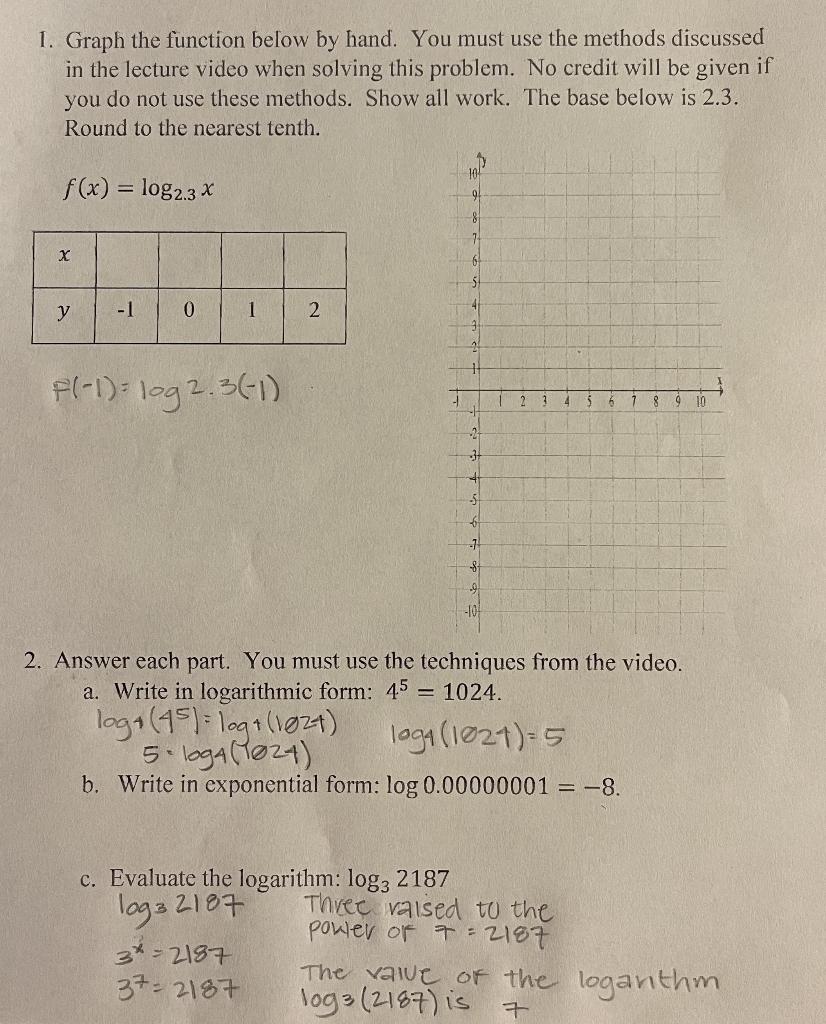 1. Graph the function below by hand. You must use the methods discussed
in the lecture video when solving this problem. No credit will be given if
you do not use these methods. Show all work. The base below is 2.3.
Round to the nearest tenth.
f(x) = log₂.₃ x
x
y -1 0 1 2
F(-1) = log 2.3(-1)
y
10
9
8
7
6
5
4
3
2
1
x
-1 1 2 3 4 5 6 7 8 9 10
-1
-2
-3
-4
-5
-6
-7
-8
-9
-10
2. Answer each part. You must use the techniques from the video.
a. Write in logarithmic form: 4⁵ = 1024.
log₄(4⁵) = log₄(1024)
5 = log₄(1024)
log₄(1024) = 5
b. Write in exponential form: log 0.00000001 = −8.
c. Evaluate the logarithm: log₃ 2187
log₃ 2187
3ˣ = 2187
3⁷ = 2187
Three raised to the
power of 7 = 2187
The value of the logarithm
log₃(2187) is 7